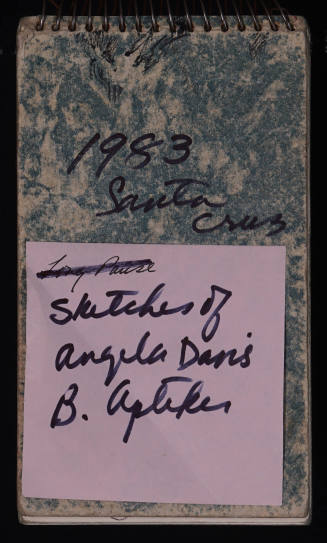 1983
Santa
Cruz
Sketches of
Angela Davis
B. Aptheker